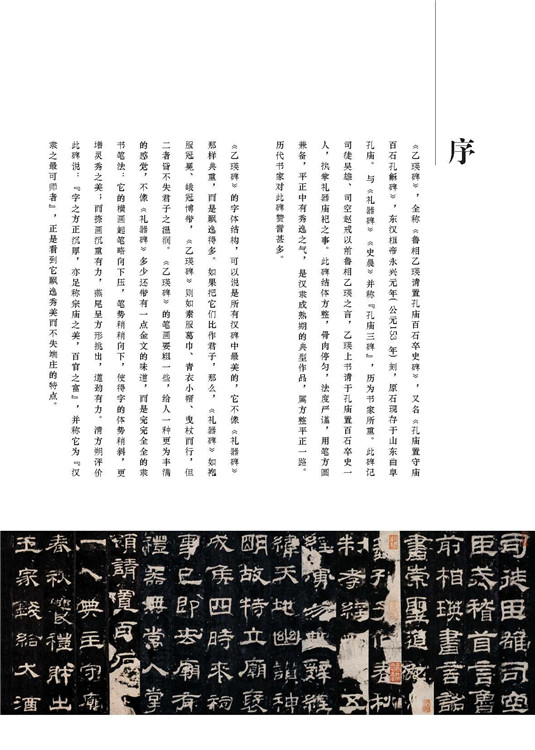 序
《乙瑛碑》，全称《鲁相乙瑛请置孔庙百石卒史碑》，又名《孔庙置守庙
百石孔龢碑》，东汉桓帝永兴元年（公元153年）刻，原石现存于山东曲阜
孔庙。与《礼器碑》《史晨》并称『孔庙三碑』，历为书家所重。此碑记
司徒吴雄、司空赵戒以前鲁相乙瑛之言，乙瑛上书请于孔庙置百石卒史一
人，执掌礼器庙祀之事。此碑结体方整，骨肉停匀，法度严谨，用笔方圆
兼备，平正中有秀逸之气，是汉隶成熟期的典型作品，属方整平正一路。
历代书家对此碑赞誉甚多。
《乙瑛碑》的字体结构，可以说是所有汉碑中最美的，它不像《礼器碑》
那样典重，而是飘逸得多。如果把它们比作君子，那么，《礼器碑》如袍
服冠冕、峨冠博带，《乙瑛碑》则如素服葛巾、青衣小帽、曳杖而行，但
二者皆不失君子之温润。《乙瑛碑》的笔画要粗一些，给人一种更为丰满
的感觉，不像《礼器碑》多少还带有一点金文的味道，而是完完全全的隶
书笔法：它的横画起笔略向下压，笔势稍稍向下，使得字的体势稍斜，更
增灵秀之美；而捺画沉重有力，燕尾呈方形挑出，遒劲有力。清方朔评价
此碑说：『字之方正沉厚，亦足称宗庙之美，百官之富』，并称它为『汉
隶之最可师者』，正是看到它飘逸秀美而不失端庄的特点。
司徒臣雄司空
臣戒稽首言鲁
前相瑛书言诏
书崇圣道
孔子作春秋
制孝经
经演易系辞
经纬天地幽赞神
明故特立庙褒
成侯四时来祠
事已即去庙有
礼器无常人掌
领请置百石
一人典主守庙
春秋飨礼财出
王家钱给大酒